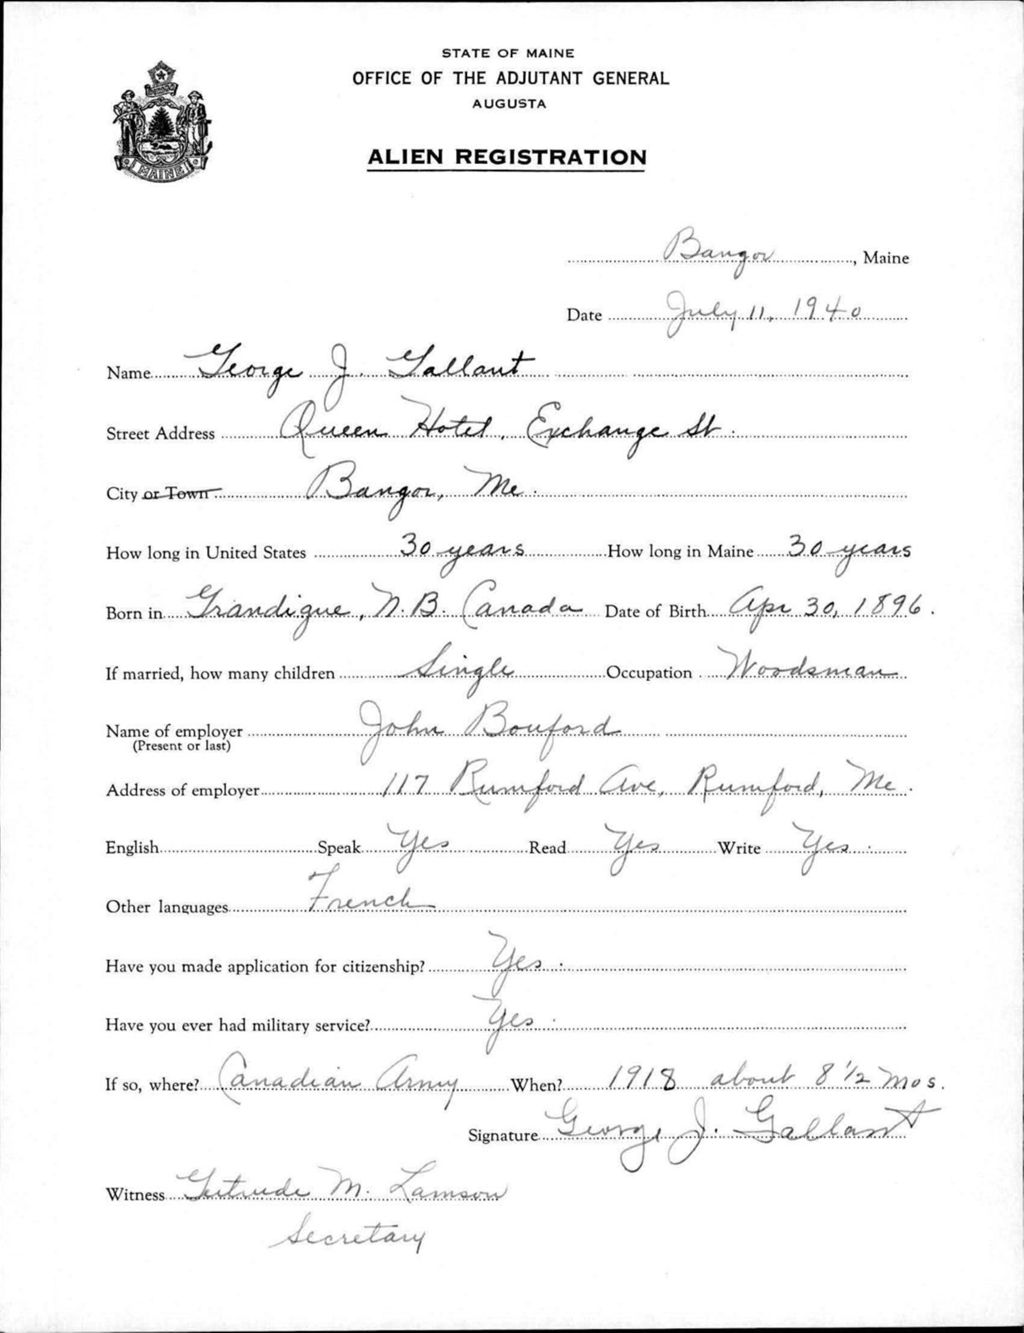 STATE OF MAINE
OFFICE OF THE ADJUTANT GENERAL
AUGUSTA
ALIEN REGISTRATION
MAINE
Bangor, Maine
Date July 11, 1940
Name George J. Gallant
Street Address Queen Hotel, Exchange St.
City or Town Bangor, Me.
How long in United States 30 years How long in Maine 30 years
Born in Grandigue, N.B. Canada Date of Birth Apr 30, 1896.
If married, how many children Single Occupation Woodsman
Name of employer John Bouford
(Present or last)
Address of employer 117 Rumford Ave, Rumford, Me.
English Speak Yes Read Yes Write Yes.
Other languages French
Have you made application for citizenship? Yes.
Have you ever had military service? Yes.
If so, where? Canadian Army When? 1918 about 8 1/2 mos.
Signature George J. Gallant
Witness Gertrude M. Lamson
Secretary